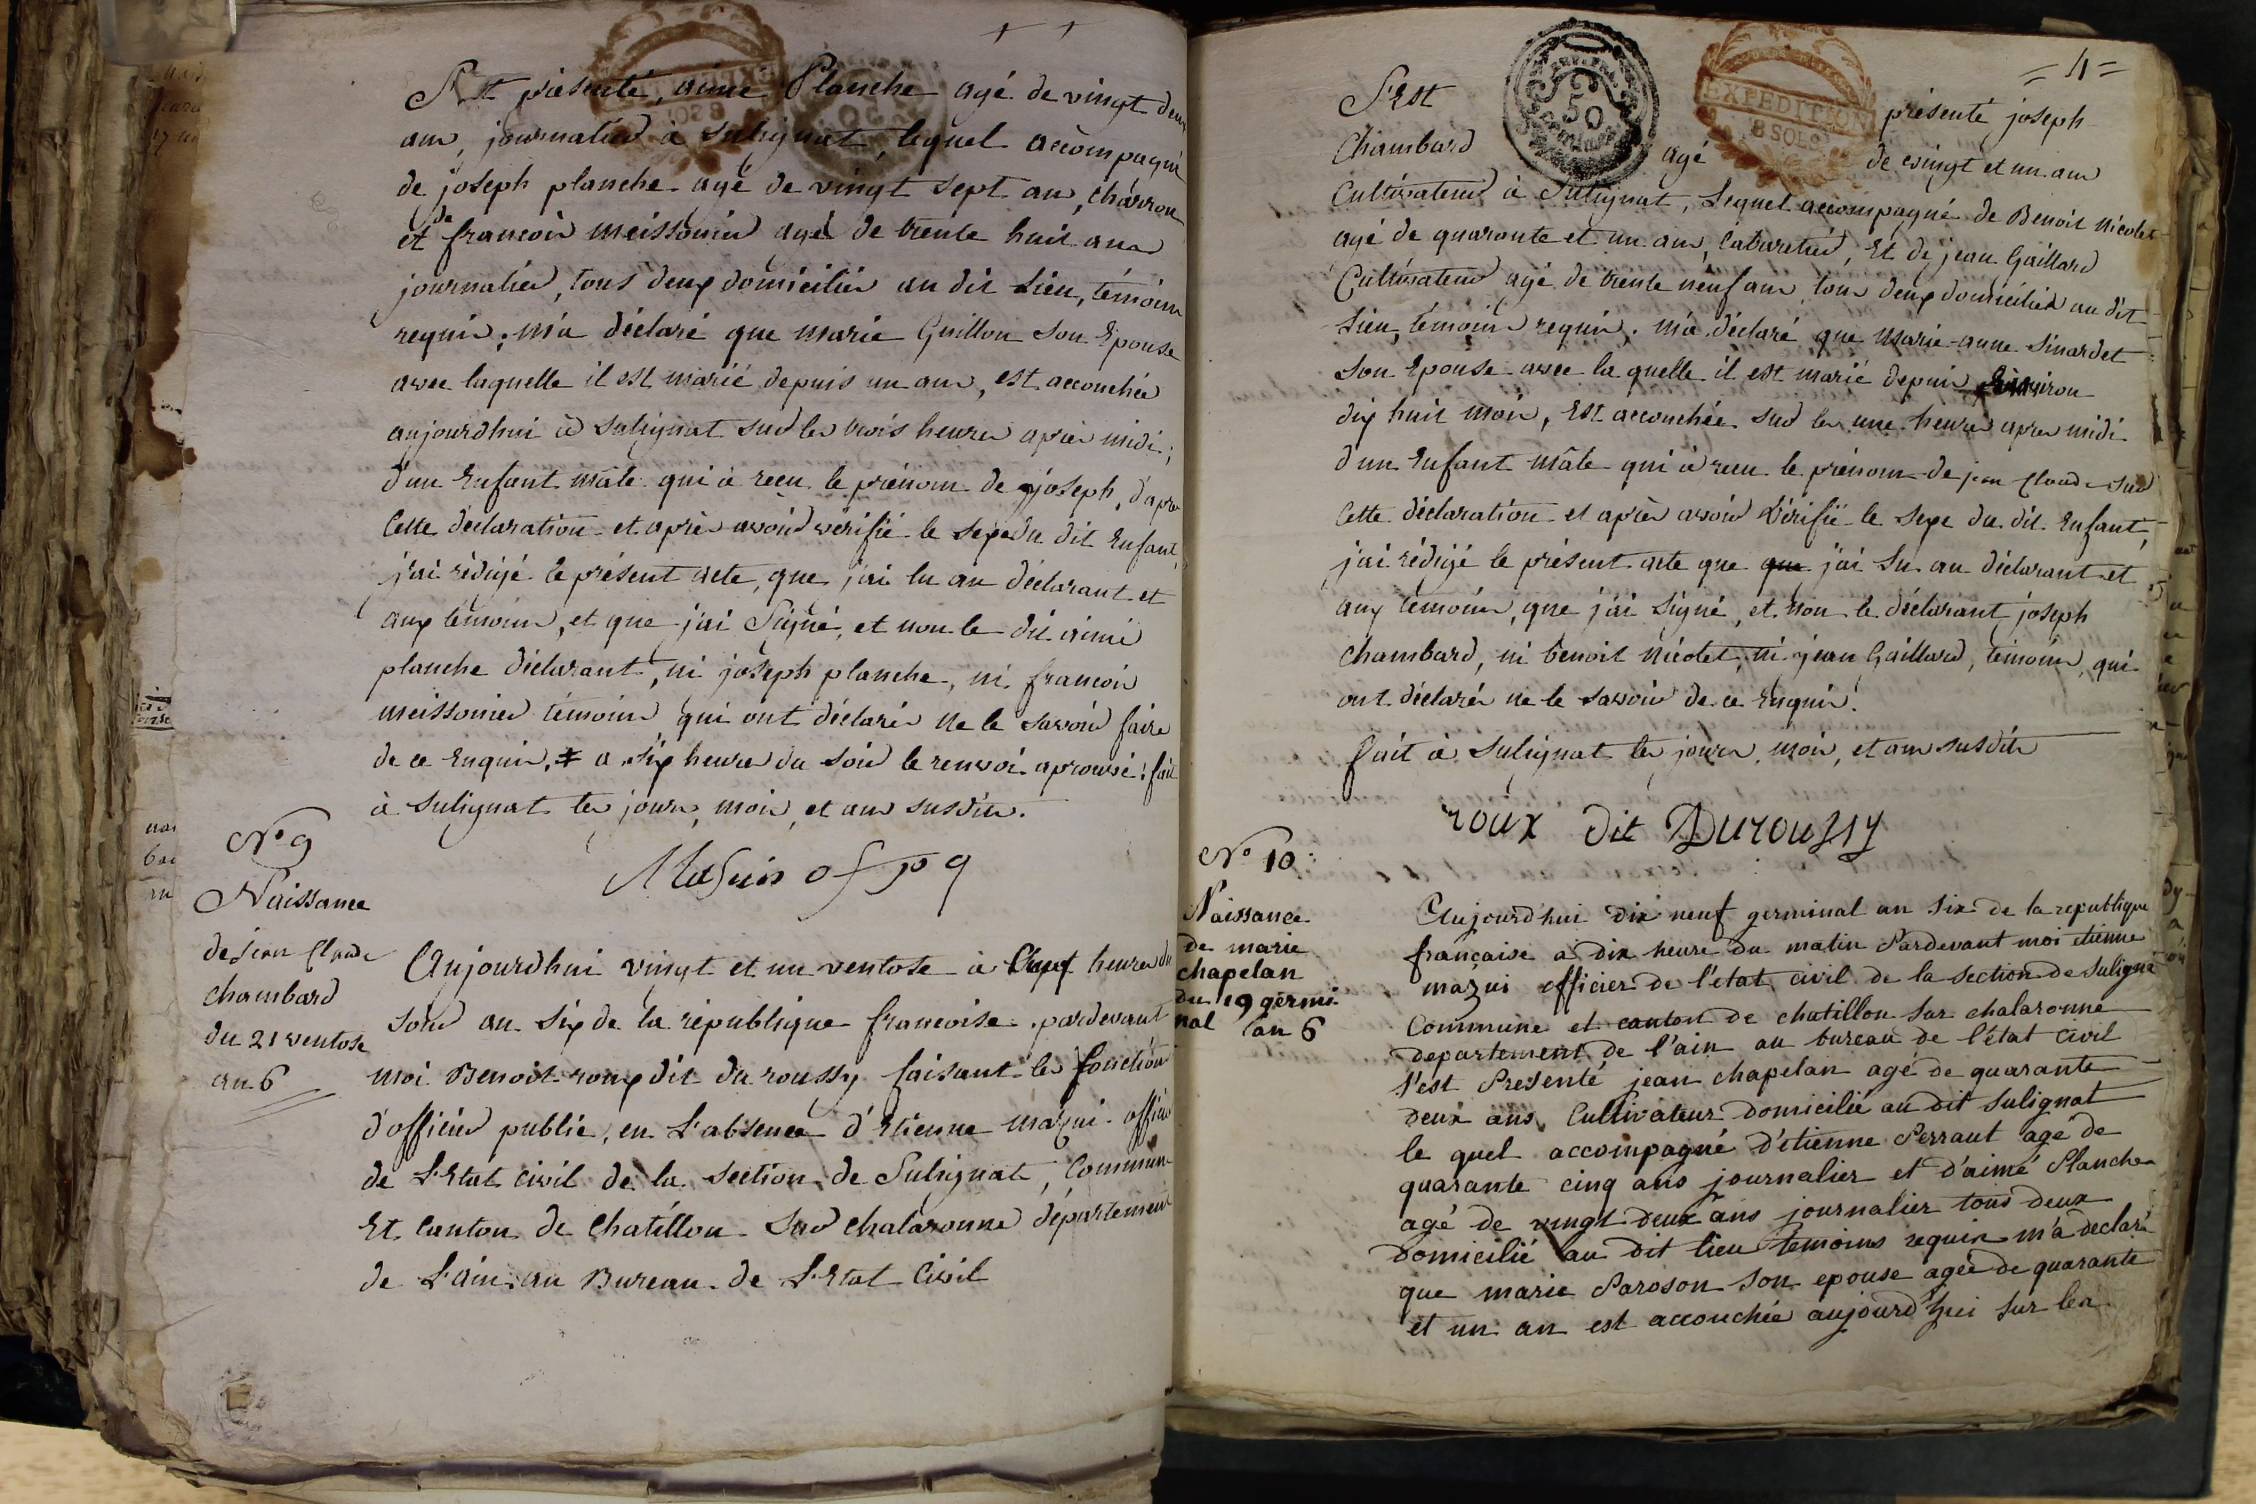 S'Est présenté, aimé Planche agé de vingt deux
ans, journalier a Sulignat, lequel accompagné
de joseph planche agé de vingt sept ans, charron
et de francois meissonier agé de trente huit ans
journalier, tous deux domiciliés au dit Lieu, témoins
requis; m'a déclaré que marie Guillon son Epouse
avec laquelle il est marié depuis un ans, est accouchée
aujourdhui à Sulignat sur les trois heures après midi;
d'un Enfant mâle qui à reçu le prénom de joseph, d'après
Cette déclaration et après avoir vérifié le sexe du dit Enfant,
j'ai rédigé le présent acte, que j'ai lu au déclarant et
aux témoins, et que j'ai Signé, et non le dit aimé
planche déclarant, ni joseph planche, ni francois
meissonier témoins qui ont déclarés ne le savoir faire
de ce Enquis, ŧ a six heures du soir le renvoi aprouvé: fait
à Sulignat les jours, mois, et ans susdits.
Masuis of p q
N° 9
Naissance
de jean Claude
chambard
du 21 ventose
an 6
Aujourdhui vingt et un ventose à heures du
soir an six de la république francoise, pardevant
moi Benoit roux dit du roussy faisant les fonction
d'officier public, en L'absence d'Etienne mazui officier
de L'Etat civil de la section de Sulignat, Commune
Et Canton de Chatillon Sur chalaronne département
de L'ain, au Bureau de L'Etat Civil
= 4 =
50
EXPEDITION
8 SOLS
S'Est présenté joseph
Chambard agé de vingt et un ans
Cultivateur à Sulignat, Lequel accompagné de Benoit Nicolet
agé de quarante et un ans, Cabaretier, Et de jean Gaillard
Cultivateur agé de trente neuf ans tous deux domiciliés au dit
Lieu, témoins requis. m'a déclaré que Marie-anne Sinardet
son Epouse avec la quelle il est marié depuis Environ
dix huit mois, Est accouchée sur les une heures apres midi
d'un Enfant mâle qui à reçu le prénom de jean Claude sur
cette déclaration et après avoir Vérifié le sexe du dit Enfant,
j'ai rédigé le présent acte que que j'ai Lu au déclarant et
aux témoins, que j'ai Signé, et non le déclarant joseph
chambard, ni benoit Nicolet, ni jean Gaillard, témoins, qui
ont déclarés ne le savoir de ce Enquis.
fait à Sulignat les jours, mois, et ans susdits
roux dit Duroussy
N° 10
Naissance
de marie
chapelan
du 19 germi
nal an 6
Aujourd'hui dix neuf germinal an six de la republique
française a dix heure du matin Pardevant moi etienne
mazui officier de l'état civil de la section de Suligna
Commune et canton de chatillon sur chalaronne
departement de l'ain au bureau de l'état civil
s'est Présenté jean chapelan agé de quarante
deux ans Cultivateur domicilié au dit Sulignat
le quel accompagné d'etienne Perraut agé de
quarante cinq ans journalier et d'aimé Planche
agé de vingt deux ans journalier tous deux
domicilié au dit lieu temoins requis m'a déclaré
que marie Paroson son epouse agée de quarante
et un an est accouchée aujourd'hui sur les